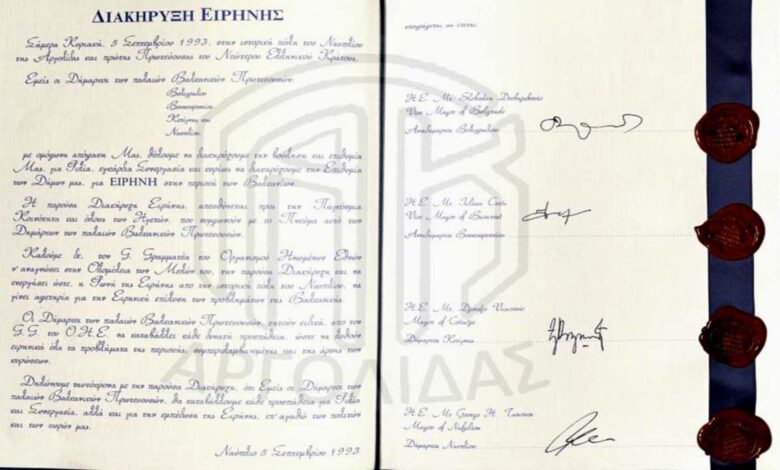 ΔΙΑΚΗΡΥΞΗ ΕΙΡΗΝΗΣ
Σήμερα Κυριακή, 5 Σεπτεμβρίου 1993, στην ιστορική πόλη του Ναυπλίου
της Αργολίδας και πρώτης Πρωτεύουσας του Νεώτερου Ελληνικού Κράτους.
Εμείς οι Δήμαρχοι των παλαιών Βαλκανικών Πρωτευουσών
Βελιγραδίου
Βουκουρεστίου
Κετίγκης και
Ναυπλίου,
με ομόφωνη απόφαση Μας, θέλουμε να διακηρύξουμε την βούληση και επιθυμία
Μας, για Φιλία, εγκάρδια Συνεργασία και κυρίως να διακηρύξουμε την Επιθυμία
των Δήμων μας, για ΕΙΡΗΝΗ στην περιοχή των Βαλκανίων.
Η παρούσα Διακήρυξη Ειρήνης, απευθύνεται προς την Παγκόσμια
Κοινότητα και όλους των Ηγετών, που συμφωνούν με το Πνεύμα αυτό των
Δημάρχων των παλαιών Βαλκανικών Πρωτευουσών.
Καλούμε δε, τον Γ. Γραμματέα του Οργανισμού Ηνωμένων Εθνών
ν' αναγνώσει στην Ολομέλεια των Μελών του, την παρούσα Διακήρυξη και να
ενεργήσει ώστε, η Φωνή της Ειρήνης από την ιστορική πόλη του Ναυπλίου, να
γίνει αφετηρία για την Ειρηνική επίλυση των προβλημάτων της Βαλκανικής.
Οι Δήμαρχοι των παλαιών Βαλκανικών Πρωτευουσών, ζητούν ειδικά, από τον
G.G. του Ο.Η.Ε. να καταβάλλει κάθε δυνατή προσπάθεια, ώστε να λυθούν
ειρηνικά όλα τα προβλήματα της περιοχής, συμπεριλαμβανομένης και της άρσης των
κυρώσεων.
Δηλώνουμε ταυτόχρονα με την παρούσα Διακήρυξη, ότι Εμείς οι Δήμαρχοι των
παλαιών Βαλκανικών Πρωτευουσών, θα καταβάλλουμε κάθε προσπάθεια για Φιλία
και Συνεργασία, αλλά και για την εμπέδωση της Ειρήνης, επ' αγαθώ των πολιτών
και των χωρών μας.
Ναύπλιο 5 Σεπτεμβρίου 1993
υπογράφεται ως έπεται:
H.E. Mr. Slobodan
Vice Mayor of Belgrade
Αντιδήμαρχος Βελιγραδίου
H.E. Mr. Iulian
Vice Mayor of
Αντιδήμαρχος Βουκουρεστίου
H.E. Mr.
Mayor of
Δήμαρχος Κετίγκης
H.E. Mr George H.
Mayor of Nafplion
Δήμαρχος Ναυπλίου
ΑΡΓΟΛΙΔΑΣ